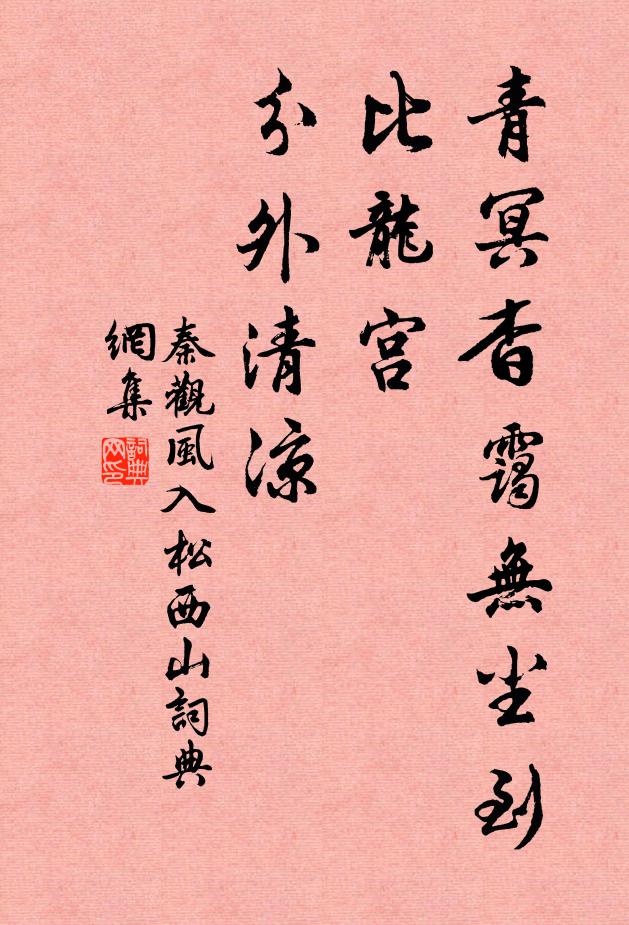 青冥杳靄無尘到
比龍宫
分外清涼
秦觀風入松西山詞典
網集
詞典网印